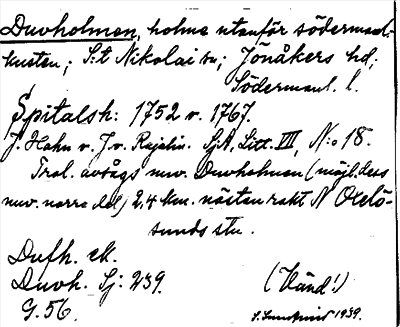 Duvholmen, holme utanför södermanl.
kusten; S:t Nikolai sn; Jönåkers hd;
Södermanl. l.
Spitalsh: 1752 v. 1767.
J. Hahn v. J. v. Rajalin. SjA, Litt. III, N:o 18.
Trol. avsågs nuv. Duvholmen (möjl. dess
nuv. norra del) 2,4 km. nästan rakt N Oxelö-
sunds stn.
Dufh. ek.
Duvh. Sj: 239.
G. 56.
(Vänd!)
1939.